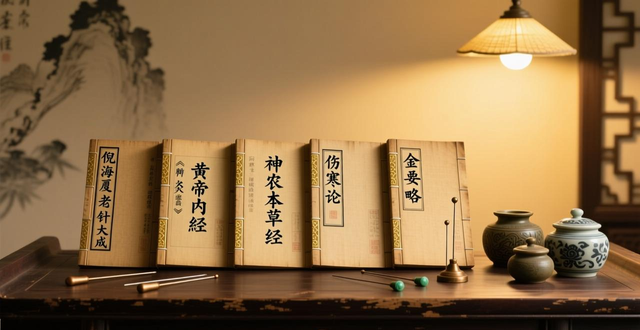 倪海厦老针大成
黄帝内經
神农本草经
伤寒论
金要略